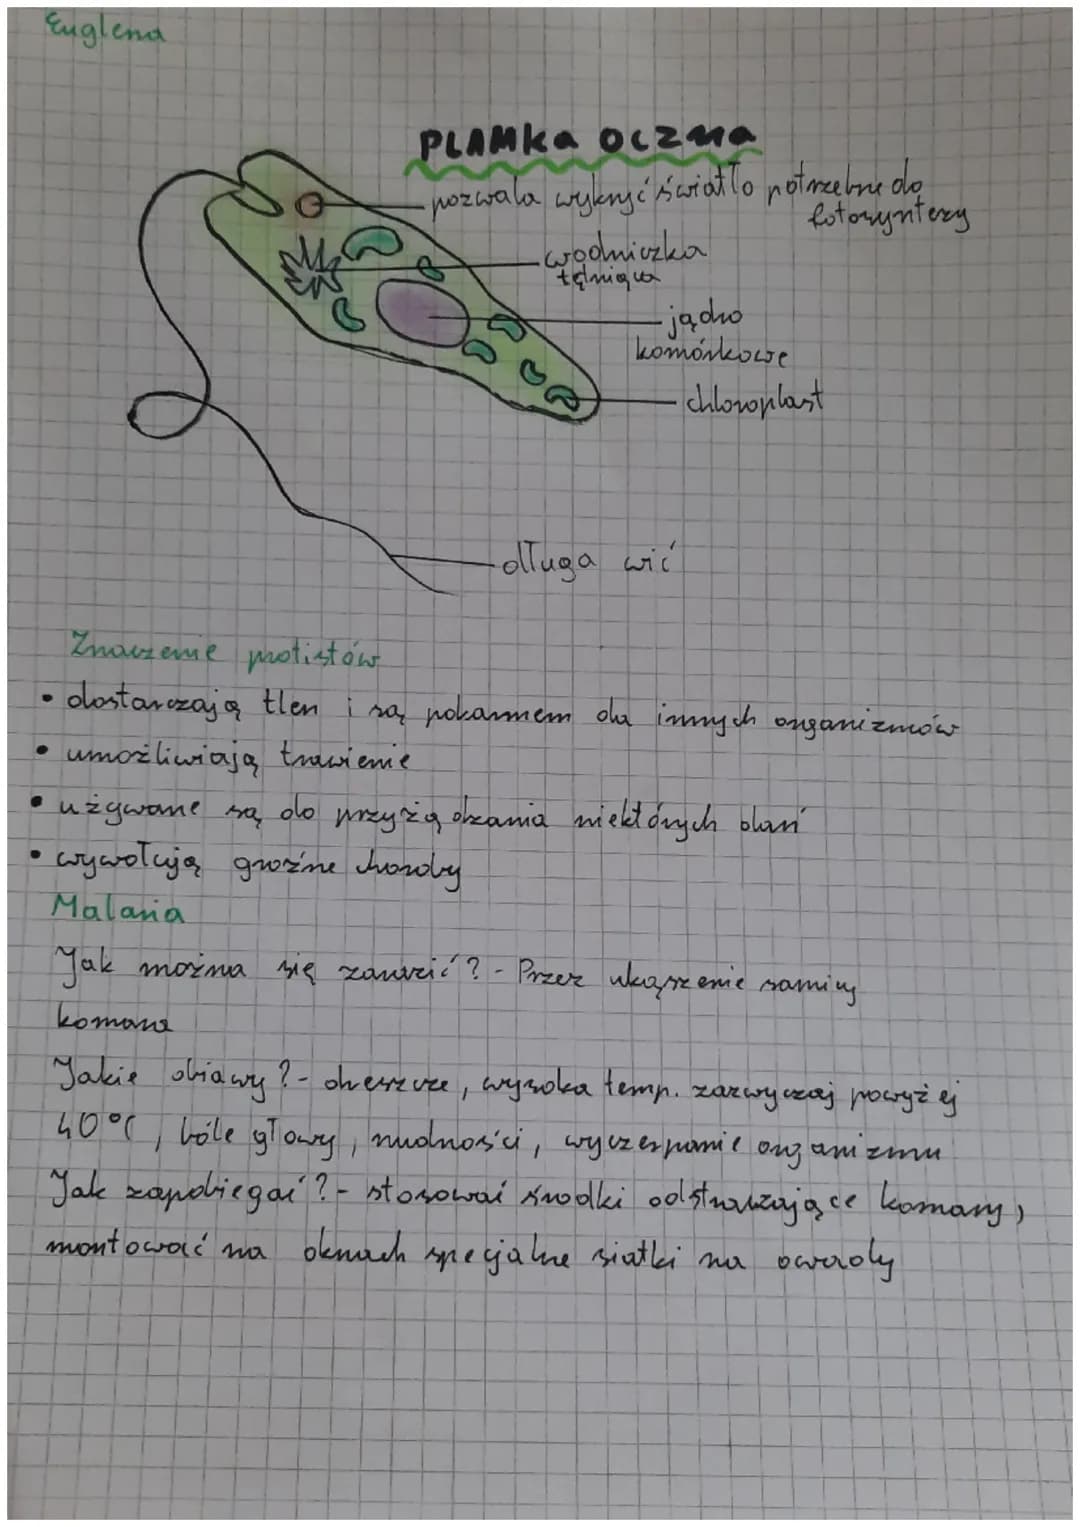 Euglena
PLAMKA OCZNA
pozwala wykryć światło potrzebne do
fotosyntezy
wodniczka
tętniąca
jądro
komórkowe
chloroplast
długa wić
Znaczenie protistów
• dostarczają tlen i są pokarmem dla innych organizmów
• umożliwiają trawienie
• używane są do przyrządzania niektórych dań
• wywołują groźne choroby
Malaria
Jak można się zarazić? - Przez ukąszenie samicy
komara
Jakie obiawy? - dreszcze, wysoka temp. zazwyczaj powyżej
40°C, bóle głowy, nudności, wyczerpanie organizmu
Jak zapobiegać? - stosować środki odstraszające komary,
montować na oknach specjalne siatki na owady